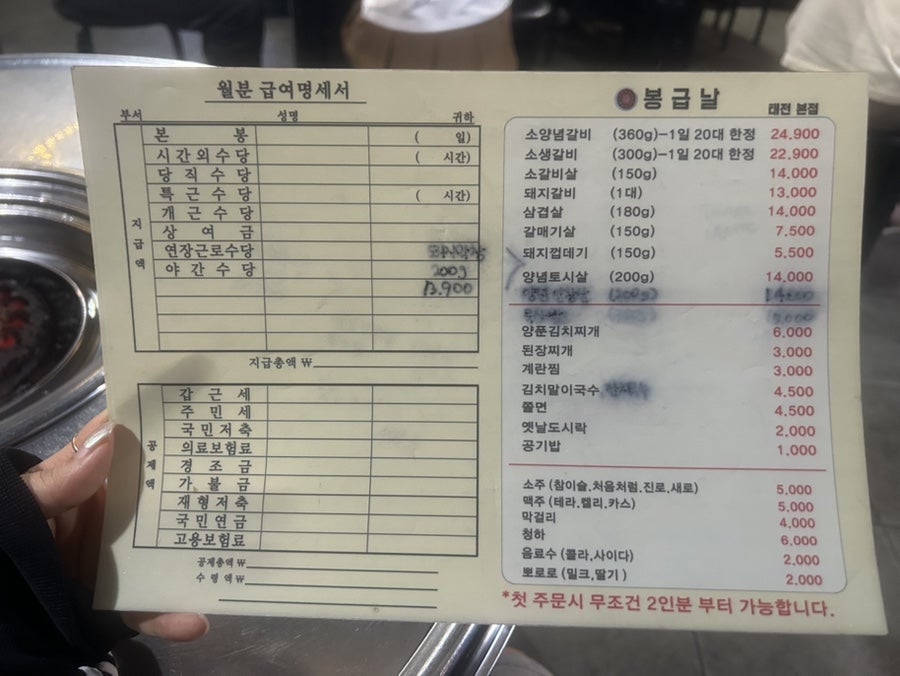 월분 급여명세서
부서 성명 귀하
지급액
본 봉 ( 일)
시간외수당 ( 시간)
당직수당
특근수당 ( 시간)
개근수당
상여금
연장근로수당
야간수당 200g
13.900
지급총액 ₩
공제액
갑근세
주민세
국민저축
의료보험료
경조금
가불금
재형저축
국민연금
고용보험료
공제총액 ₩
수령액 ₩
봉급날 태전 본점
소양념갈비 (360g)-1일 20대 한정 24.900
소생갈비 (300g)-1일 20대 한정 22.900
소갈비살 (150g) 14.000
돼지갈비 (1대) 13.000
삼겹살 (180g) 14.000
갈매기살 (150g) 7.500
돼지껍데기 (150g) 5.500
양념토시살 (200g) 14.000
양푼김치찌개 6.000
된장찌개 3.000
계란찜 3.000
김치말이국수 4.500
쫄면 4.500
옛날도시락 2.000
공기밥 1.000
소주 (참이슬,처음처럼,진로,새로) 5.000
맥주 (테라,켈리,카스) 5.000
막걸리 4.000
청하 6.000
음료수 (콜라,사이다) 2.000
뽀로로 (밀크,딸기) 2.000
*첫 주문시 무조건 2인분 부터 가능합니다.